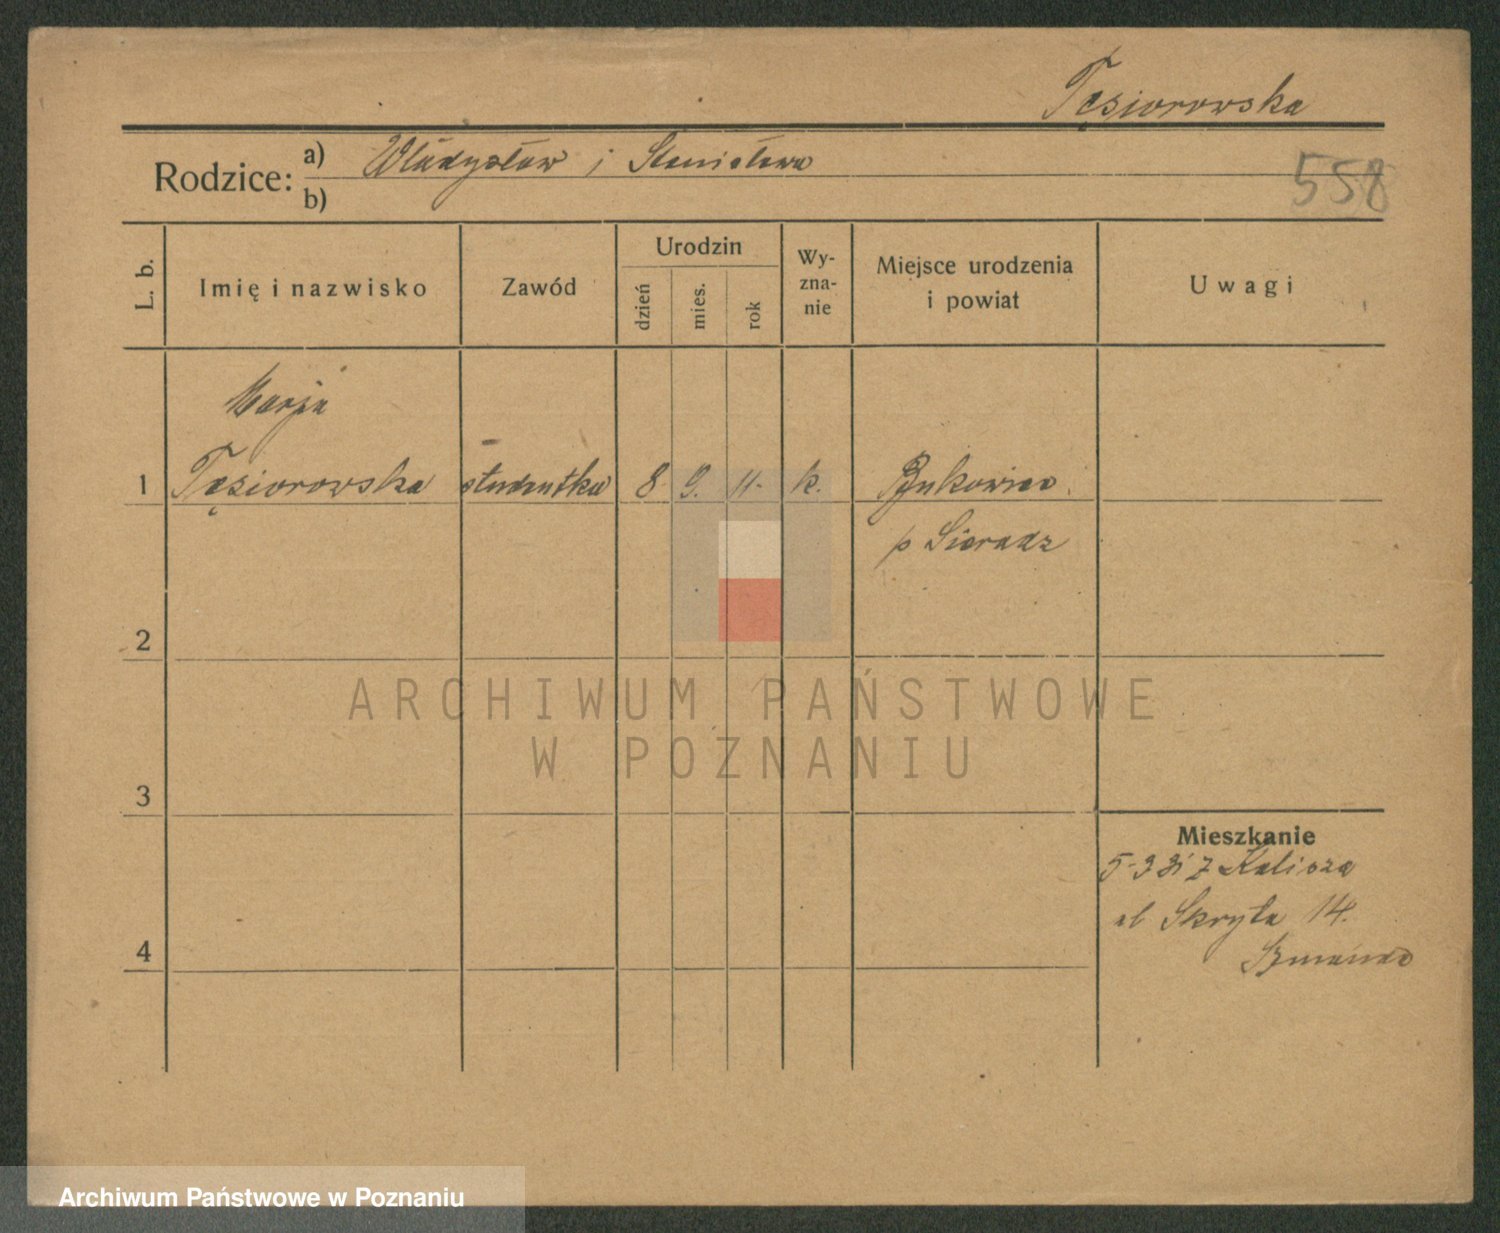 Tęsiorowska
Rodzice: a) Władysław i Stanisława
b)
558
L. b.
Imię i nazwisko
Zawód
Urodzin
dzień
mies.
rok
Wy-
zna-
nie
Miejsce urodzenia
i powiat
Uwagi
Marja
1 Tęsiorowska studentka 8. 9. 11. k. Bukowiec
p Sieradz
2
3
4
Mieszkanie
z Kalisza
ul Skryta 14.
ARCHIWUM PAŃSTWOWE
W POZNANIU
Archiwum Państwowe w Poznaniu